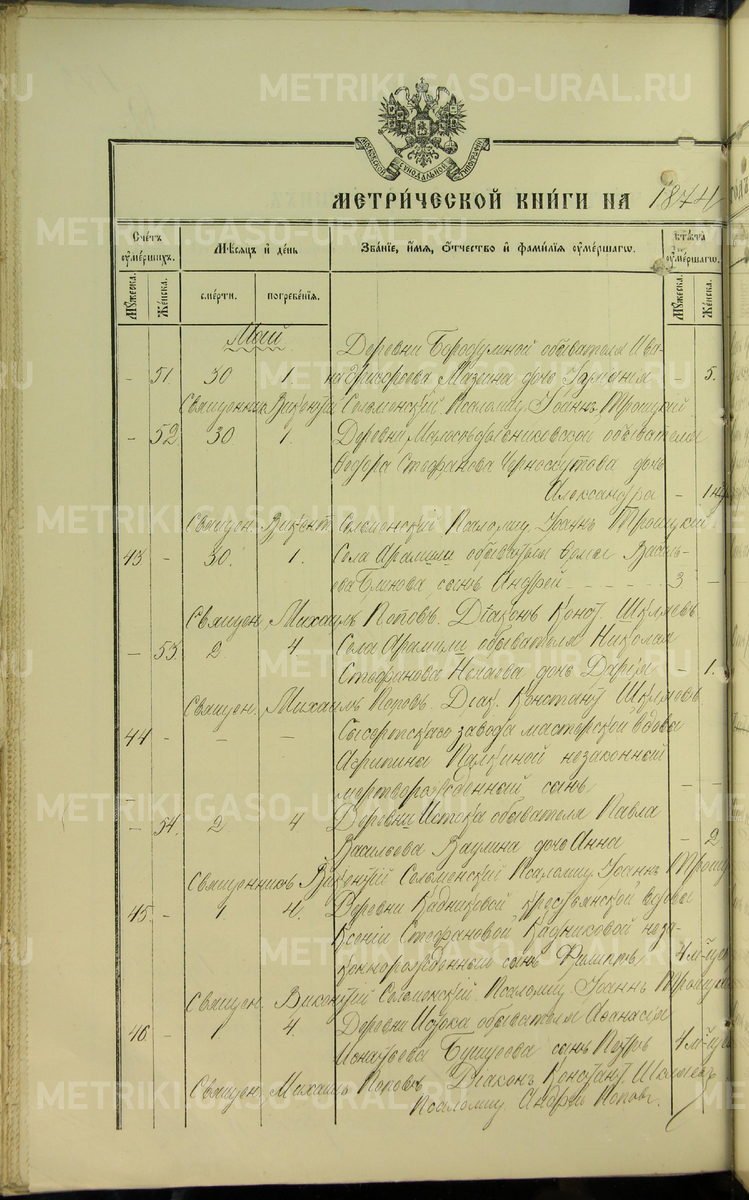 METRIKI.GASO-URAL.RU
МЕТРИ́ЧЕСКОЙ КНИ́ГИ НА 1874
Счётъ ᲂу҆ме́ршихъ.
Мѣ́сяцъ и҆ де́нь
Зва́нїе, и҆́мя, ѻ҆́тчество и҆ фами́лїя ᲂу҆ме́ршагѡ.
Лѣ́та ᲂу҆ме́ршагѡ.
Мꙋ́жеска. Же́нска. сме́рти. погребе́нїя. Мꙋ́жеска. Же́нска.
Май
Деревни Бородулиной обывателя Ива-
- 51. 30 1. на Григорьева Мазеина дочь - 5.
Священникъ Викентій Соломенскій Псаломщ. Іоаннъ Троицкій
- 52 30 1. Деревни обывателя
Ѳедора Стефанова Черноскутова дочь
Александра - 1
Священ. Викент. Соломенскій Псаломщ. Іоаннъ Троицкій
43 - 30. 1. Села Арамили обывателя Василь-
ева Блинова сынъ Андрей 3 -
Священ. Михаилъ Поповъ. Діаконъ Конст. Шкляевъ
- 53. 2 4 Села Арамили обывателя Николая
Стефанова дочь Дарія - 1.
Священ. Михаилъ Поповъ. Діак. Констант. Шкляевъ
44 - - - Сысертскаго завода мастерской вдовы
Агрипины Палкиной незаконный
мертворожденный сынъ - -
- 54. 2 4 Деревни Истока обывателя Павла
Васильева Ваулина дочь Анна - 2
Священникъ Викентій Соломенскій Псаломщ. Іоаннъ Троиц
45. - 1 4. Деревни Кадниковой крестьянской вдовы
Ксеніи Стефановой Кадниковой неза-
коннорожденный сынъ Филиппъ 4 м-ц
Священ. Викентій Соломенскій. Псаломщ. Іоаннъ Троицк
46. - 1 4 Деревни Истока обывателя Аѳанасія
Игнатьева сынъ Петръ 4 м-ц
Священ. Михаилъ Поповъ Діаконъ Констант. Шкляевъ
Псаломщ. Андрей Поповъ.